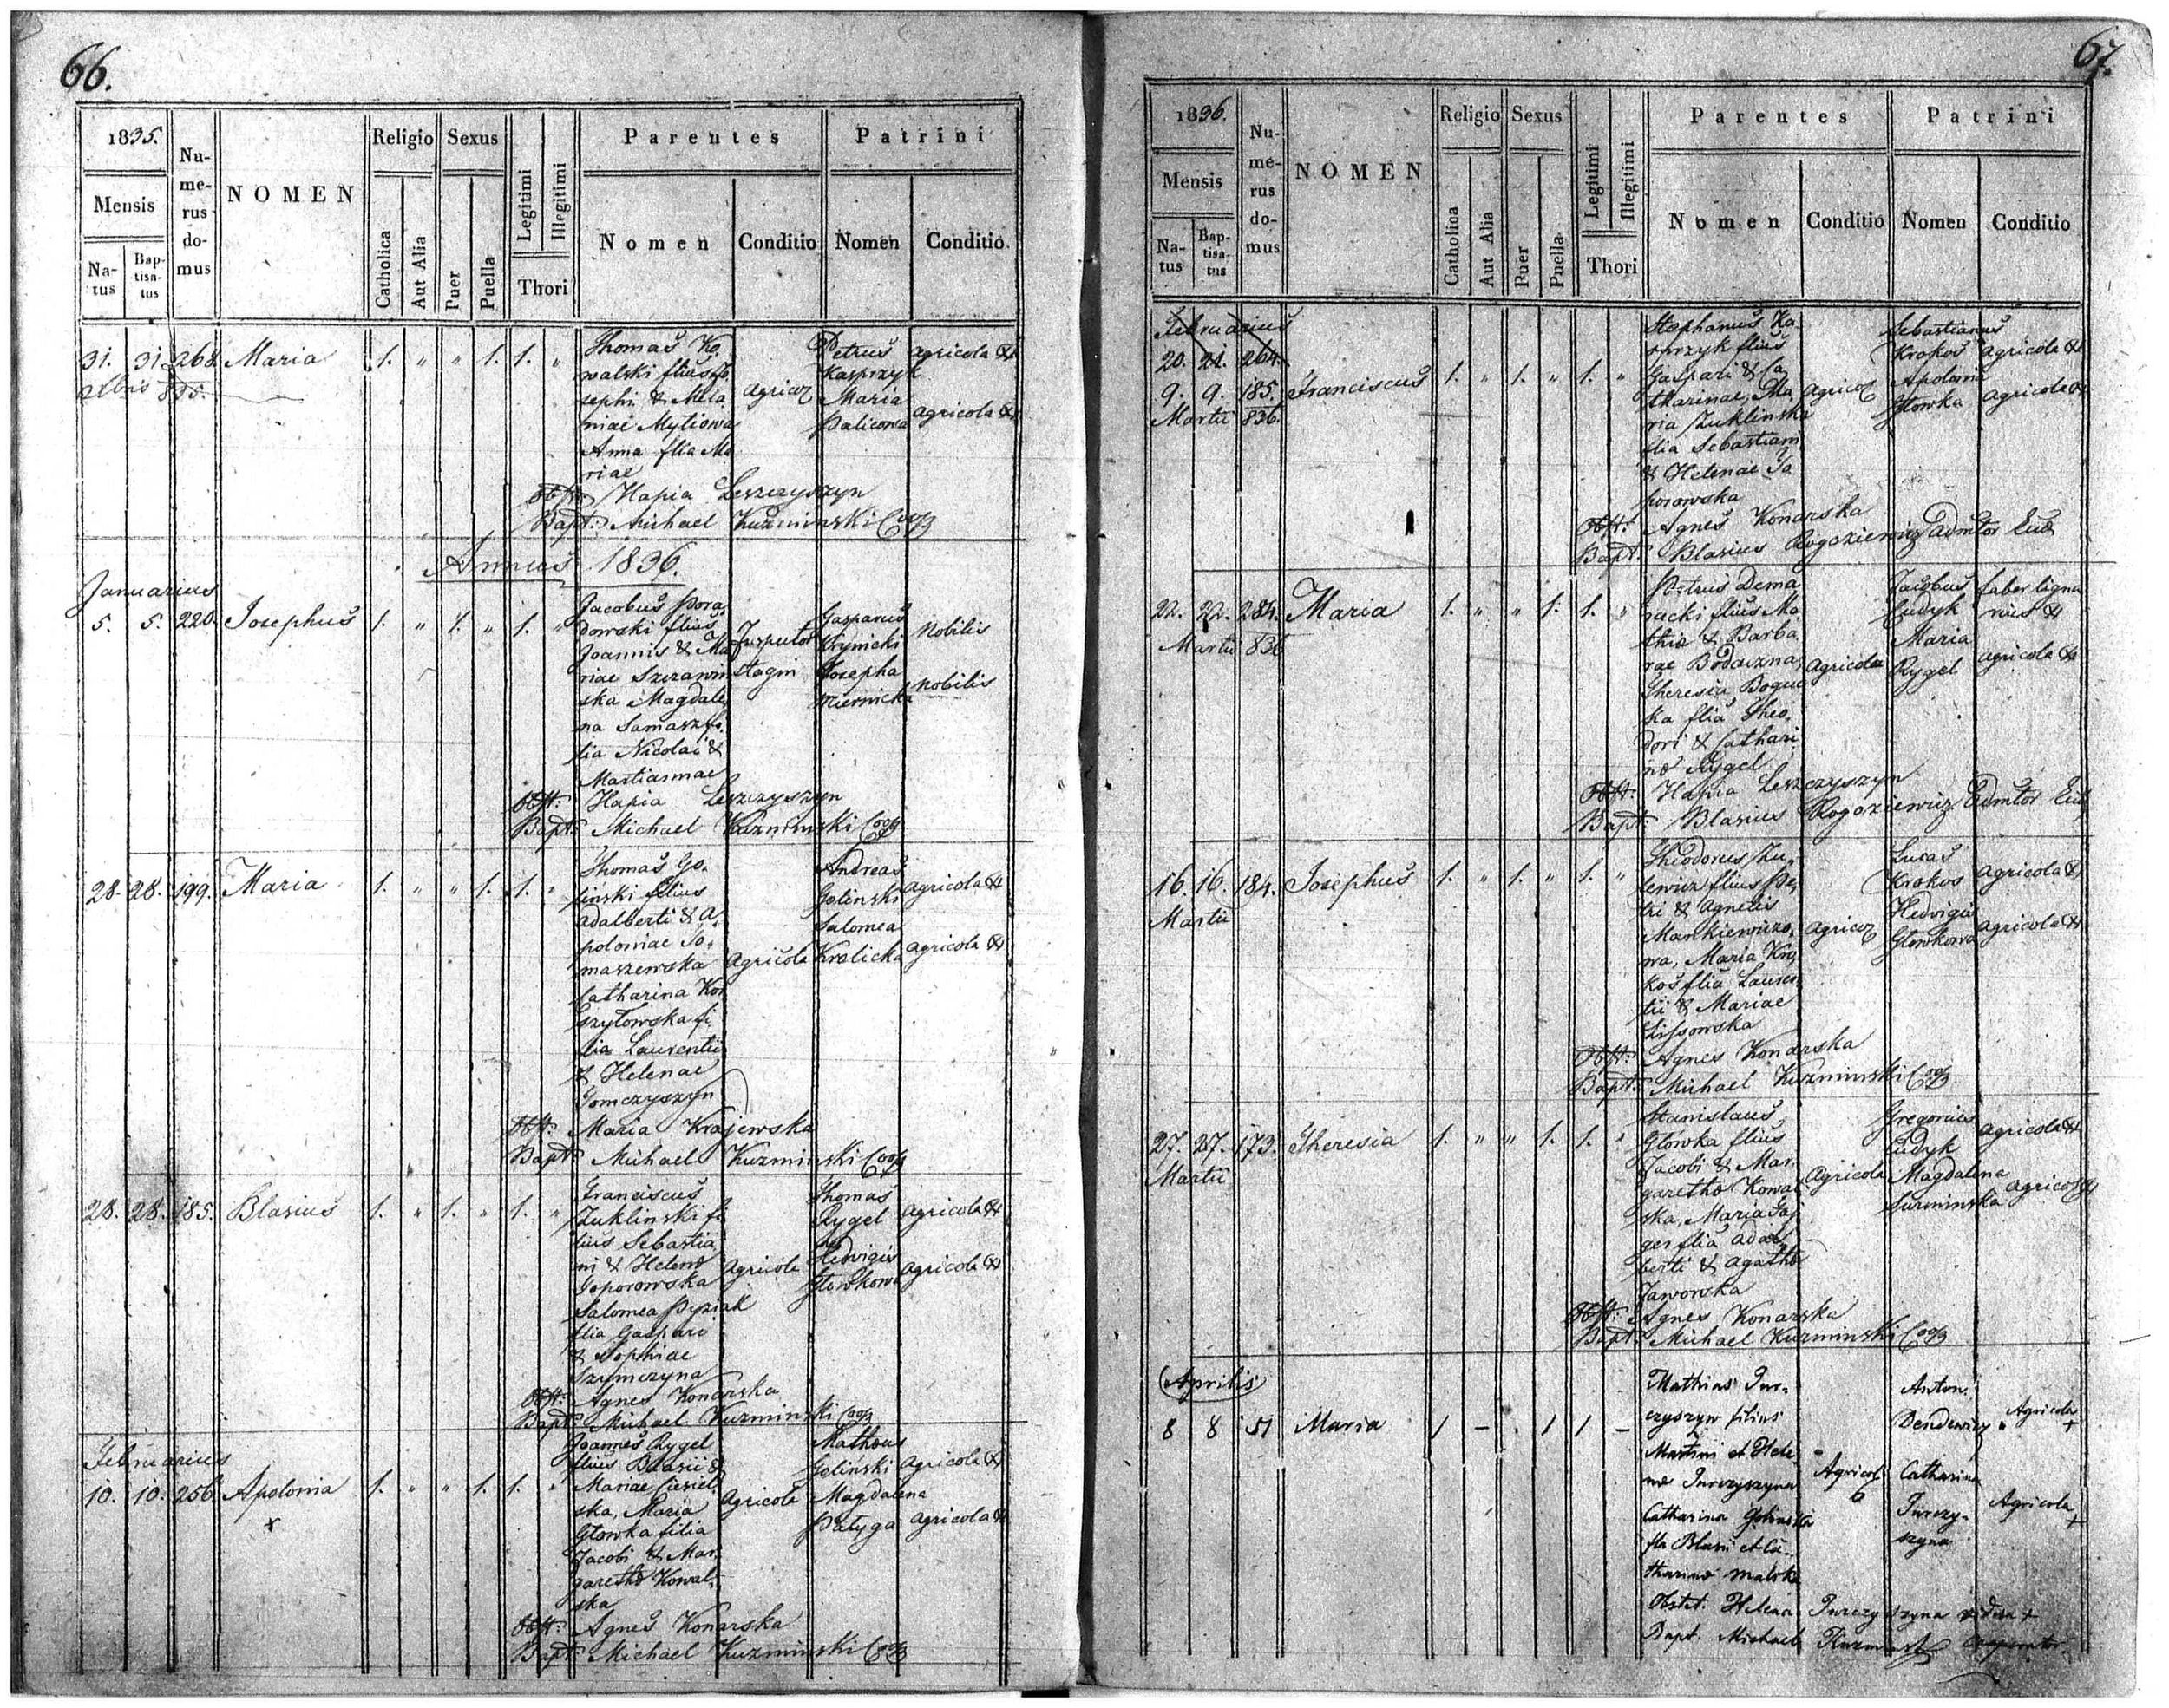 66.
1835.
Mensis
Na-
tus
Bap-
tisa-
tus
Nu-
me-
rus
do-
mus
NOMEN
Religio
Catholica
Aut Alia
Sexus
Puer
Puella
Legitimi
Illegitimi
Thori
Parentes
Nomen
Conditio
Patrini
Nomen
Conditio.
31. 31. 268. Maria 1. " " 1. 1. "
835.
Thomas Ko
walski flius Jo
sephi & Mela
niae Mytiowa
Anna flia Ma
riae
Agricoe
Petrus
Kasprzyk
Maria
Palicowa
agricola
agricola
Obst: Hapia Leszczyszyn
Bapt: Michael Kuzminski Coop
Annus 1836.
Januarius
5. 5. 220. Josephus 1. " 1. " 1. "
Jacobus Pora
dowski flius
Joannis & Ma
riae Szczawin
ska Magdale
na Samasz fi
lia Nicolai &
Martiannae
Gasparus
Krynicki
Josepha
Miernicka
Nobilis
Nobilis
Obst: Hapia Leszczyszyn
Bapt: Michael Kuzminski Coop
28. 28. 199. Maria 1. " " 1. 1. "
Thomas Go
linski filius
Adalberti & A
poloniae To
maszewska
Catharina Ko
szytowska fi
lia Laurentii
& Helenae
Tomczyszyn
Agricola
Andreas
Golinski
Salomea
Krolicka
agricola
agricola
Obst: Maria Krajewska
Bapt: Michael Kuzminski Coop
28. 28. 185. Blasius 1. " 1. " 1. "
Franciscus
Zuklinski fi
lius Sebastia
ni & Helenae
Toporowska
Salomea Pyziak
flia Gaspari
& Sophiae
Szymczyna
Agricola
Thomas
Rygel
Hedvigis
Glowkowa
agricola
agricola
Obst: Agnes Konarska
Bapt: Michael Kuzminski Coop
Februarius
10. 10. 256. Apolonia 1. " " 1. 1. "
Joannes Rygel
flius Blasii &
Mariae Ciesiel
ska, Maria
Glowka filia
Jacobi & Mar
garethae Kowal
ska
Agricola
Mathaeus
Golinski
Magdalena
Patyga
agricola
agricola
Obst: Agnes Konarska
Bapt: Michael Kuzminski Coop
67.
1836.
Mensis
Na-
tus
Bap-
tisa-
tus
Nu-
me-
rus
do-
mus
NOMEN
Religio
Catholica
Aut Alia
Sexus
Puer
Puella
Legitimi
Illegitimi
Thori
Parentes
Nomen
Conditio
Patrini
Nomen
Conditio
Februarius
20. 21. 264.
9. 9. 185. Franciscus 1. " 1. " 1. "
Martii 836.
Stephanus Ka
sprzyk flius
Gaspari & Ca
tharinae, Ma
ria Zuklinska
flia Sebastiani
& Helenae To
porowska
Agricoe
Sebastianus
Krokos
Apolonia
Glowka
agricola
agricola
Obst: Agnes Konarska
Bapt: Blasius Rogoziewicz Admtor Eccl
22. 22. 284. Maria 1. " " 1. 1. "
Martii 836
Petrus Dema
racki flius Ma
thiae & Barba
rae Bodaczna,
Theresia Bogu
ka flia Theo
dori & Cathari
nae Rygel
Agricola
Jacobus
Cudyk
Maria
Rygel
faber ligna
rius
agricola
Obst: Hapia Leszczyszyn
Bapt: Blasius Rogoziewicz Admtor Eccl
16. 16. 184. Josephus 1. " 1. " 1. "
Martii
Theodorus Zu
lewicz flius Pe
tri & Agnetis
Mankiewiczo
wa, Maria Kro
kos flia Lauren
tii & Mariae
Lissowska
Agricoe
Lucas
Krokos
Hedvigis
Glowkowa
agricola
agricola
Obst: Agnes Konarska
Bapt: Michael Kuzminski Coop
27. 27. 173. Theresia 1. " " 1. 1. "
Martii
Stanislaus
Glowka flius
Jacobi & Mar
garethae Kowal
ska, Maria Ja
ger flia Adal
berti & Agathae
Jaworska
Agricola
Gregorius
Cudyk
Magdalena
Surminska
agricola
agricola
Obst: Agnes Konarska
Bapt: Michael Kuzminski Coop
Aprilis
8 8 51 Maria 1 - . 1 1 -
Mathias Jur-
czyszyn filius
Martini et Hele-
nae Jurczyszyna
Catharina Golinska
fla Blasii et Ca-
tharinae Malska
Agricol
Anton.
Dendewicz
Catharina
Jurczy-
szyna
Agricola
+
Agricola
+
Obstet. Helena Jurczyszyna
Bapt. Michael Kuzminski Cooperator